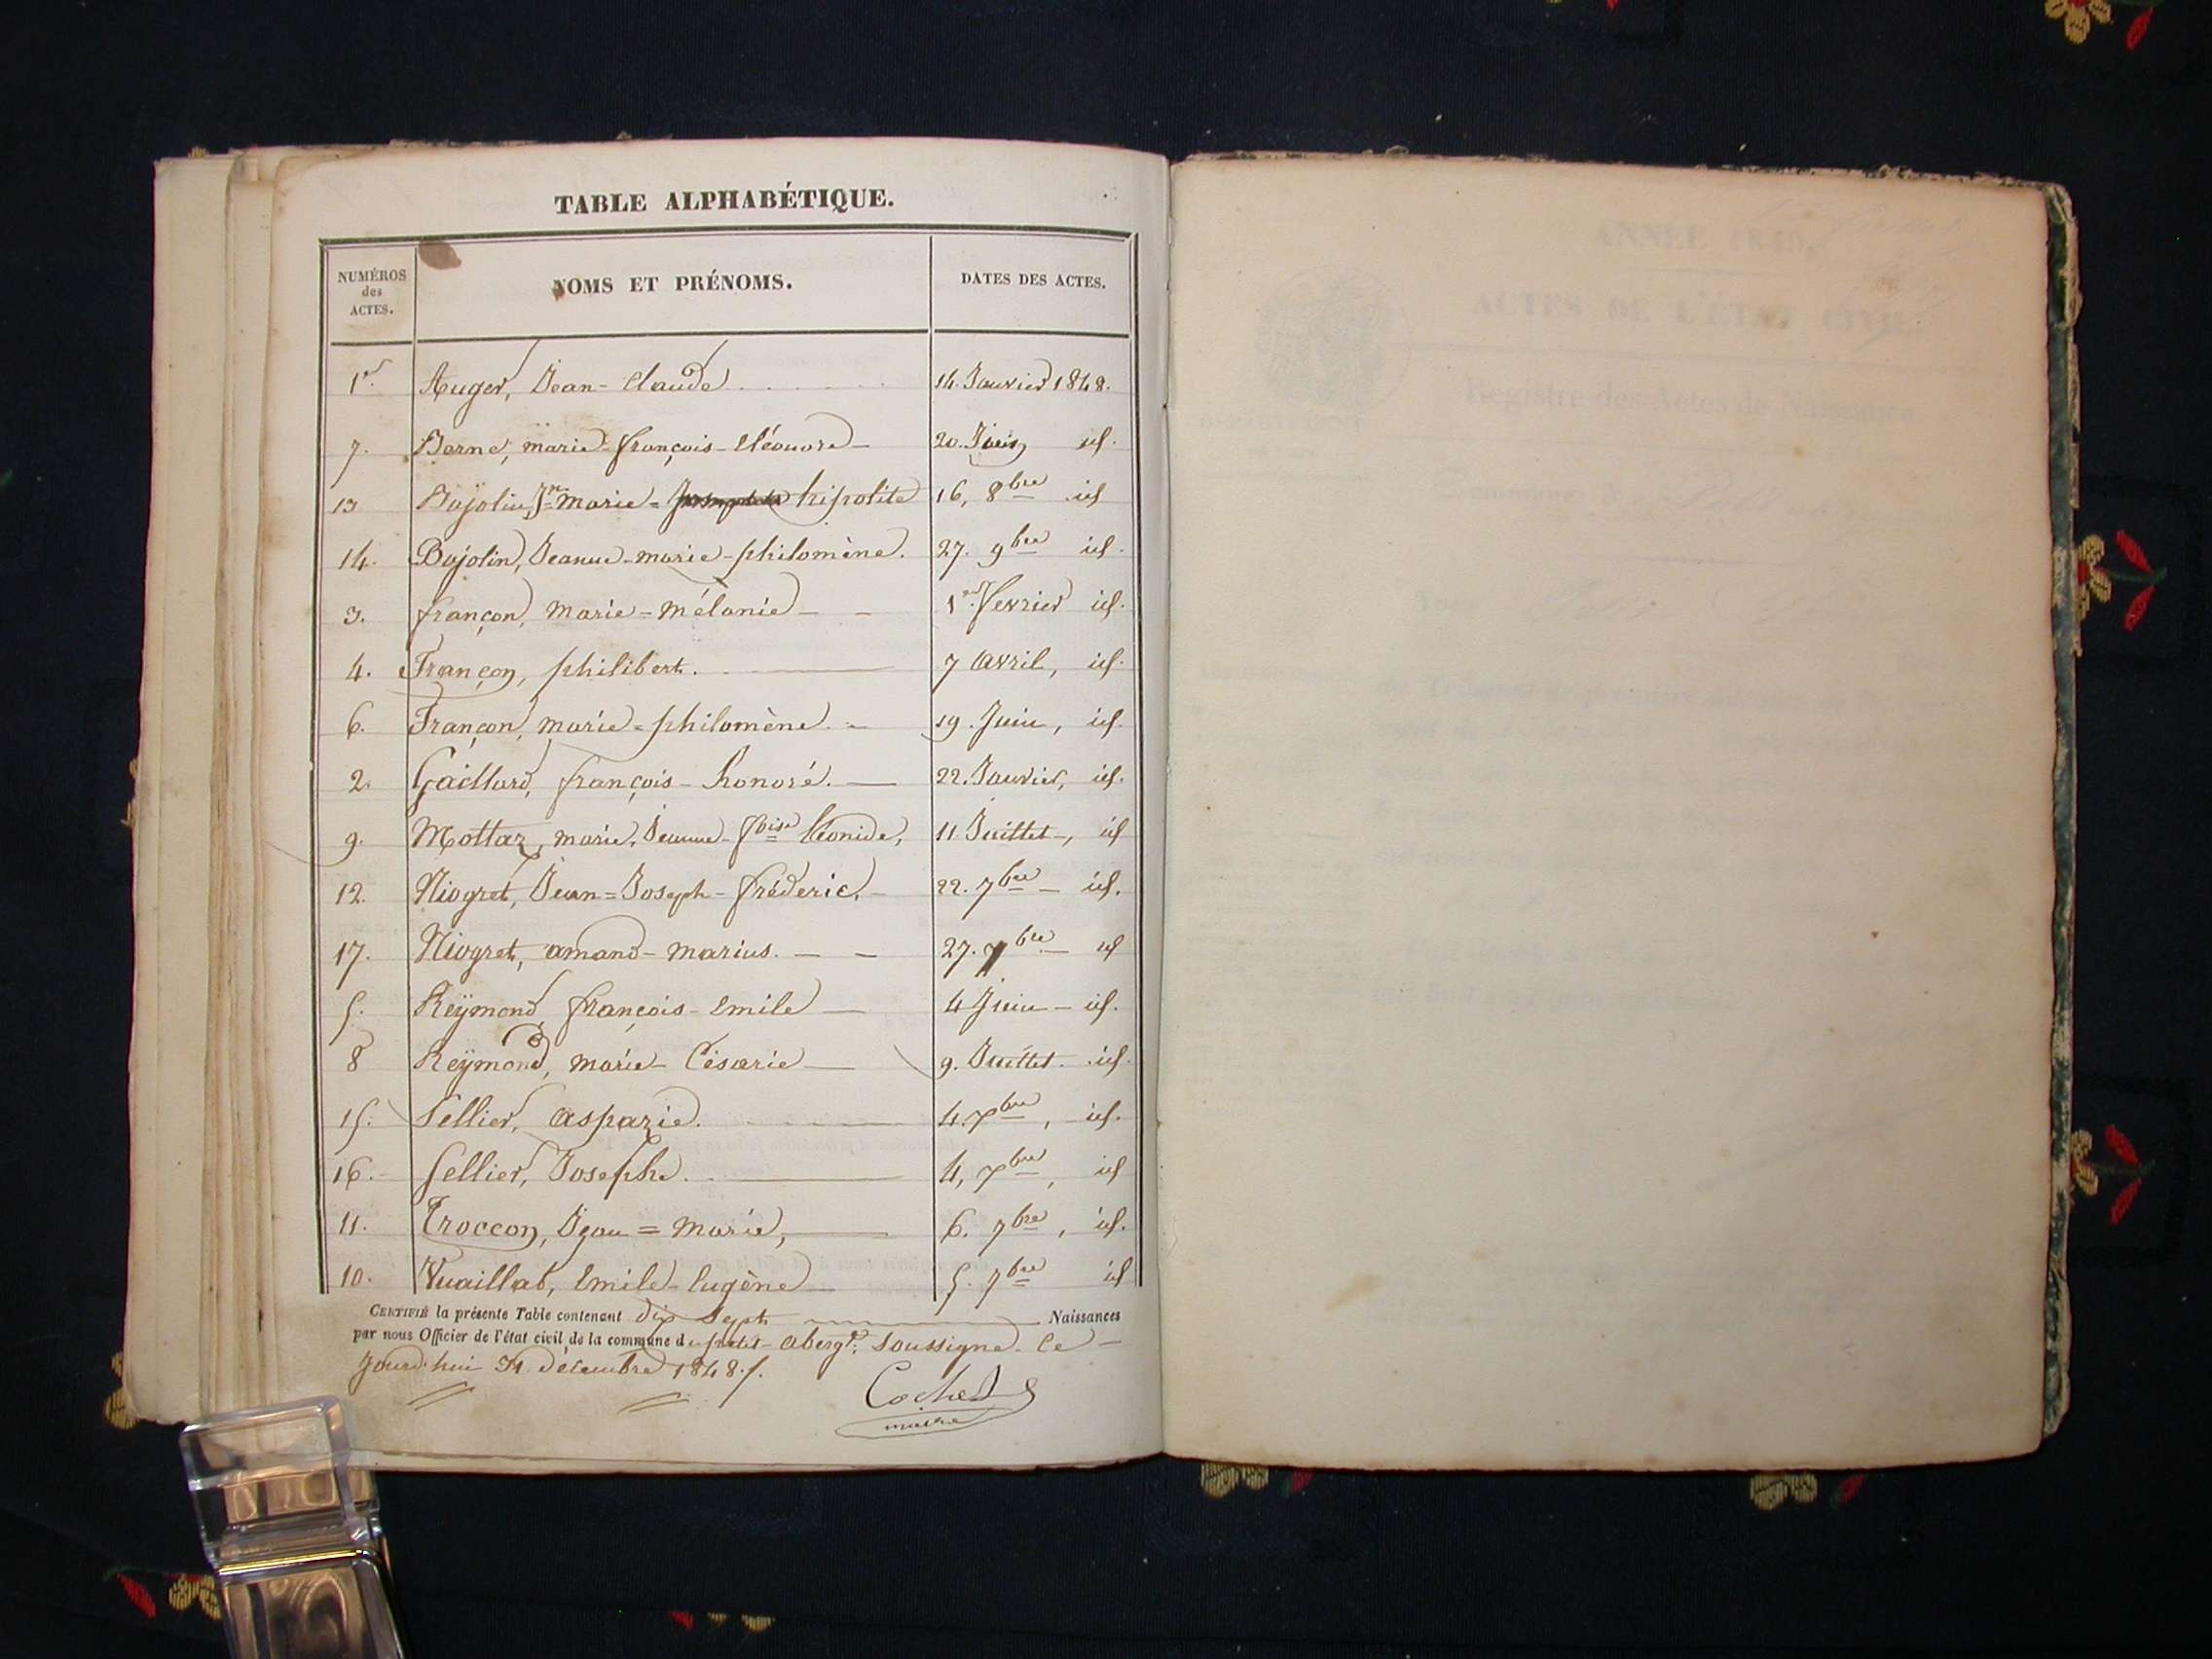 TABLE ALPHABÉTIQUE.
NUMÉROS des ACTES. NOMS ET PRÉNOMS. DATES DES ACTES.
1er. Auger, Jean-Claude 14. Janvier 1848.
7. Barne, marie-françois-Eléonore 20. Juin id.
13 Bajolin, Jn marie= hipolite 16, 8bre id
14. Bajolin, Jeanne-marie-philomène. 27. 9bre id.
3. françon, marie-mélanie 1er. Fevrier id.
4. Françon, philibert. 7 Avril, id.
6. Françon, marie=philomène. 19. Juin, id.
2. Gaillard, françois-honoré. 22. Janvier, id.
9. Mottaz, marie, Jeanne-foise Léonide, 11. Juillet, id
12. Niogret, Jean=Joseph-fréderic. 22. 7bre id.
17. Niogret, amand-marius. 27. bre id
5. Reÿmond françois-Emile 4 Juin id.
8 Reÿmond, marie-Césarie 9. Juillet. id.
15. Sellier, Aspazie. 4. bre, id.
16. Sellier, Josephe. 4, bre, id
11. Troccon, Jean=Marie, 6. 7bre, id.
10. Vuaillat, Emile-Eugène 5. 7bre id
CERTIFIÉ la présente Table contenant dix Sept Naissances
par nous Officier de l'état civil de la commune de petit-abergt. Soussigné. Ce
Jourd'hui 31. décembre 1848.
Cochet
maire
ANNÉE 1849,
ACTES DE L'ÉTAT CIVIL.
Registre des Actes de Naissance